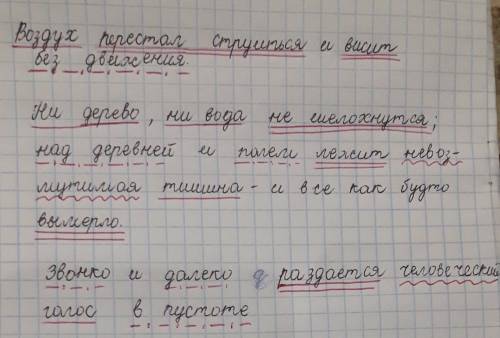 Воздух перестал струиться и висит
без движения.
Ни дерево, ни вода не шелохнутся;
над деревней и полем лежит невоз-
мутимая тишина - и все как будто
вымерло.
Звонко и далеко раздается человеческий
голос в пустоте